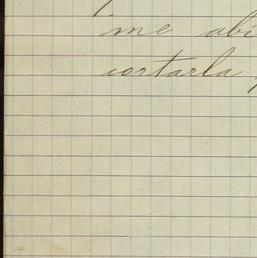 me abi
cortarla